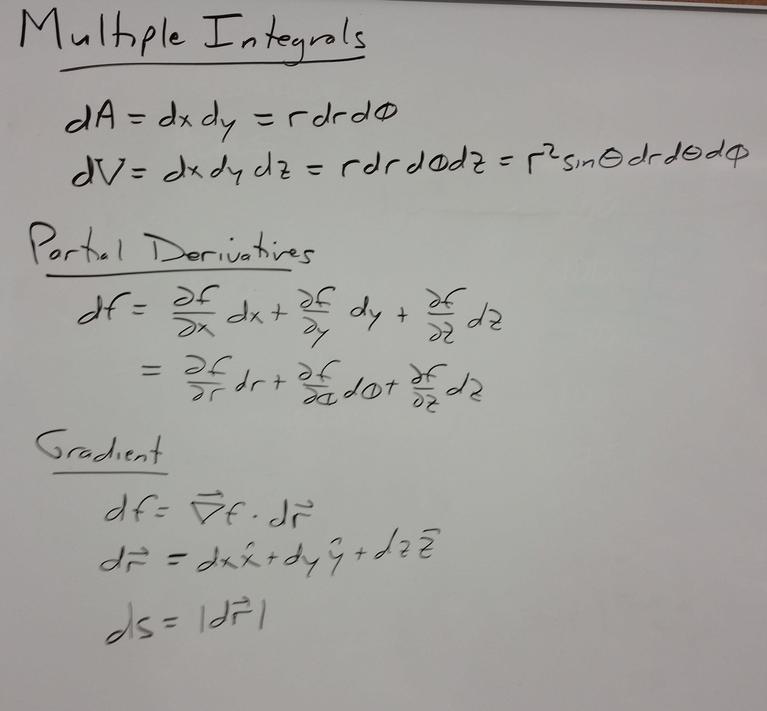 Multiple Integrals
dA = dx dy = r dr dΦ
dV = dx dy dz = r dr dΦ dz = r² sinθ dr dθ dφ
Partial Derivatives
df = ∂f/∂x dx + ∂f/∂y dy + ∂f/∂z dz
= ∂f/∂r dr + ∂f/∂Φ dΦ + ∂f/∂z dz
Gradient
df = ∇⃗f · dr⃗
dr⃗ = dx x̂ + dy ŷ + dz z̄
ds = |dr⃗|